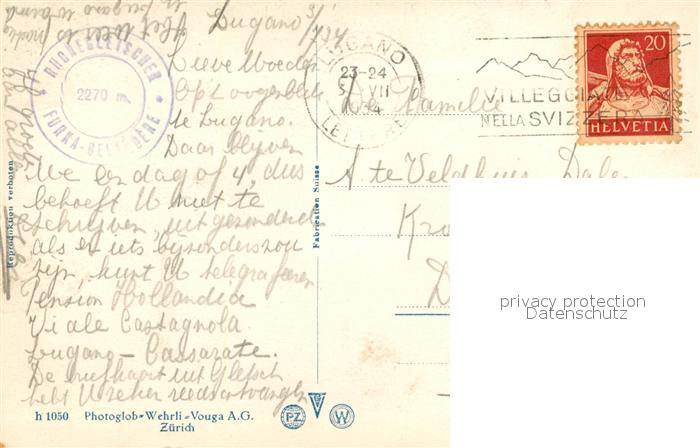 Lugano 3/7/34
Lieve Moeder
Op 't oogenblik
te Lugano.
Daar blijven
we een dag of 4, dus
behoeft U niet te
schrijven, uitgezonderd
als er iets bijzonders zou
zijn, kunt U telegrafeeren
Pension Hollandia
Viale Castagnola
Lugano – Cassarate.
De briefkaart uit Gletsch
hebt U zeker reeds ontvangen
Het weer is
te Lugano is warm
RHONEGLETSCHER
2270 m.
FURKA-BELVEDERE
LUGANO
23-24
3 VII
1934
LETTERE
VILLEGGIATE
NELLA SVIZZERA
20
HELVETIA
Familie
A te Veldhuis
Reproduktion verboten
Fabrication Suisse
h 1050 Photoglob-Wehrli-Vouga A.G.
Zürich
PZ
W
privacy protection
Datenschutz